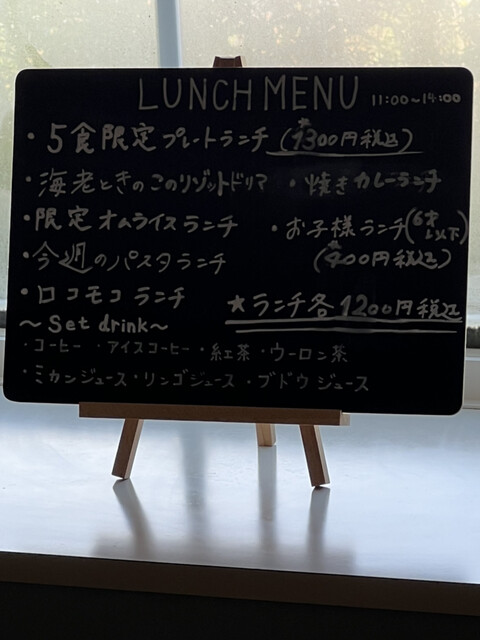 LUNCH MENU 11:00~14:00
・5食限定プレートランチ(★1300円税込)
・海老ときのこのリゾットドリア ・焼きカレーランチ
・限定オムライスランチ ・お子様ランチ(6才以下)
・今週のパスタランチ (★900円税込)
・ロコモコランチ ★ランチ各1200円税込
～Set drink～
・コーヒー ・アイスコーヒー ・紅茶 ・ウーロン茶
・ミカンジュース ・リンゴジュース ・ブドウジュース